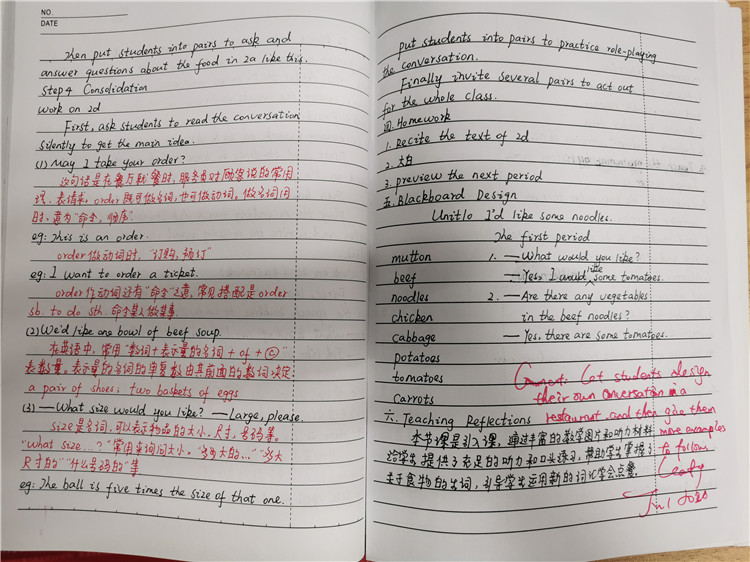 NO.
DATE
Then put students into pairs to ask and
answer questions about the food in 2a like this.
Step4 Consolidation
Work on 2d
First, ask students to read the conversation
silently to get the main idea.
(1) May I take your order?
这句话是在餐厅就餐时,服务员对顾客说的常用
语,表请求,order既可做名词,也可做动词。做名词用
时,意为"命令,顺序".
eg: This is an order.
order做动词时,"订购,预订"
eg: I want to order a ticket.
order作动词还有"命令"之意,常见搭配是order
sb. to do sth. 命令某人做某事
(2) We'd like one bowl of beef soup.
在英语中,常用"数词+表示量的名词+of+ⓒ"
表数量。表示量的名词的单复数由其前面的数词决定
a pair of shoes; two baskets of eggs
(3) —What size would you like? —Large, please.
size是名词,可以表示物品的大小,尺寸,号码等。
"What size...?"常用来询问大小。"多大的…""多大
尺寸的""什么号码的"等
eg: The ball is five times the size of that one.
put students into pairs to practice role-playing
the conversation.
Finally invite several pairs to act out
for the whole class.
四. Homework
1. Recite the text of 2d
2. 大白
3. preview the next period
五. Blackboard Design
Unit10 I'd like some noodles.
The first period
mutton 1. —What would you like?
beef —Yes, I would like some tomatoes.
noodles 2. —Are there any vegetables
chicken in the beef noodles?
cabbage —Yes, there are some tomatoes.
potatoes
tomatoes
carrots
Comment: Let students design
their own conversation in a
restaurant, and then give them
more examples
to follow
六. Teaching Reflections
本节课是引入课,通过丰富的教学图片和听力材料
给学生提供了充足的听力和口头练习,帮助学生掌握了
关于食物的名词,引导学生运用新的词汇学会点餐.